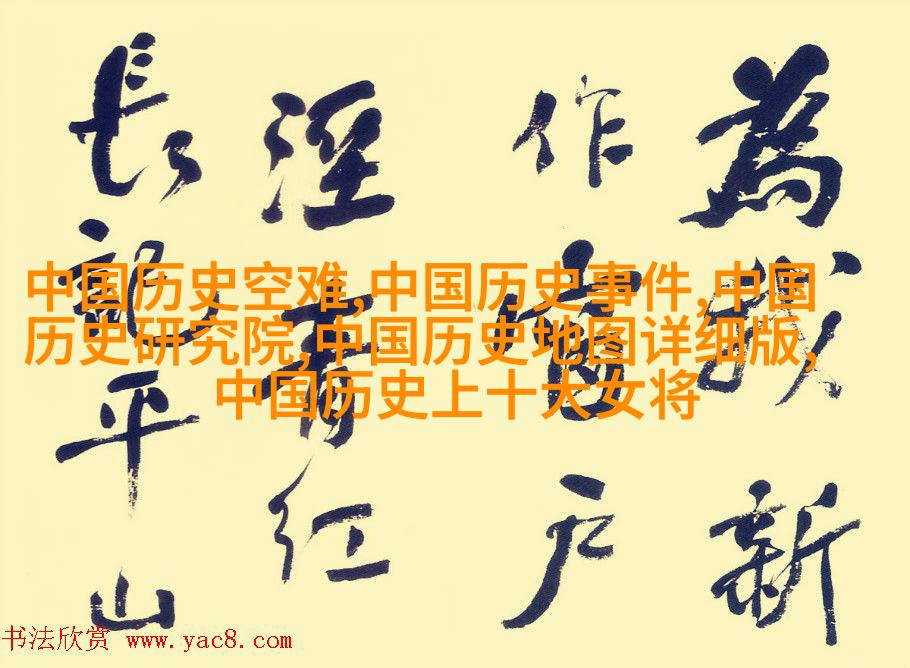 為我新
作窗户
溼青红
長記平山
中国历史空难,中国历史事件,中国
历史研究院,中国历史地图详细版,
中国历史上十大女将
书法欣赏 www.yac8.com